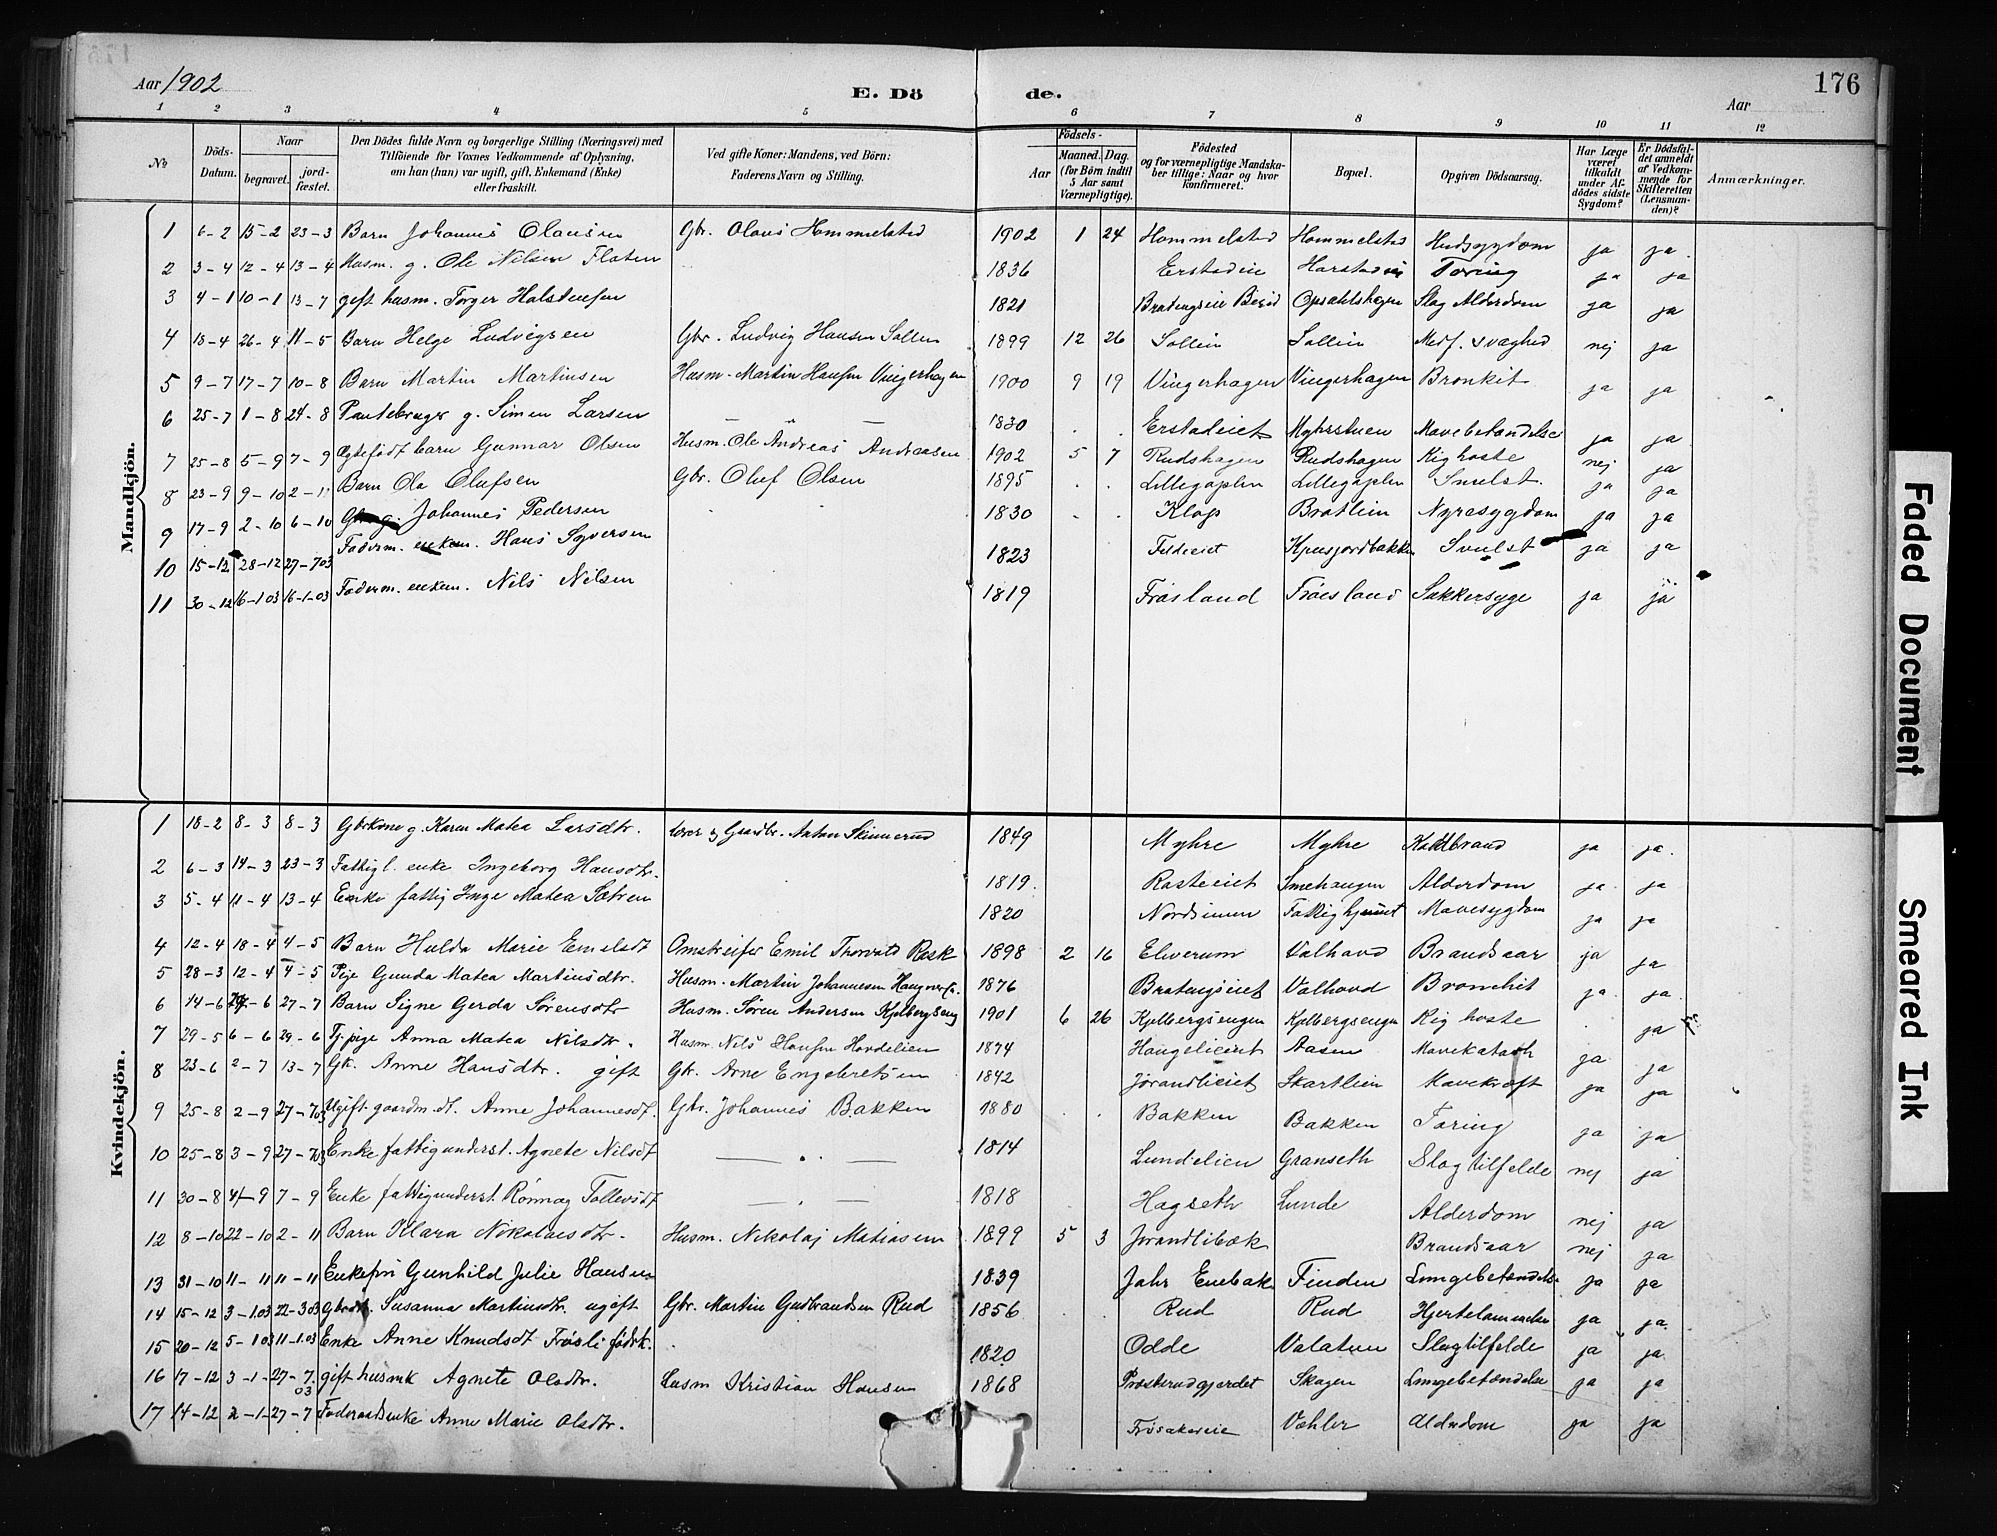 Aar 1902
E. Döde.
Aar
176
1 2 3 4 5 6 7 8 9 10 11 12
No
Döds-Datum.
Naar
begravet.
jord-fæstet.
Den Dödes fulde Navn og borgerlige Stilling (Næringsvei) med
Tilföiende for Voxnes Vedkommende af Oplysning,
om han (hun) var ugift, gift, Enkemand (Enke)
eller fraskilt.
Ved gifte Koner: Mandens, ved Börn:
Faderens Navn og Stilling.
Födsels-
Aar
Maaned. Dag.
(for Börn indtil
5 Aar samt
Værnepligtige).
Födested
og for værnepligtige Mandska-
ber tillige: Naar og hvor
konfirmeret.
Bopæl.
Opgiven Dödsaarsag.
Har Læge
været
tilkaldt
under Af-
dödes sidste
Sygdom?
Er Dödsfal-
det anmeldt
af Vedkom-
mende for
Skifteretten
(Lensman-
den)?
Anmærkninger.
Mandkjön.
1 6-2 15-2 23-3 Barn Johannes Olausen Gbr. Olaus Hommelsted 1902 1 24 Hommelsted Hommelsted Hudsygdom ja ja.
2 3-4 12-4 13-4 Husm. g. Ole Nilsen Floten 1836 Erstadeie Tæring ja ja
3 4-1 10-1 13-7 gift husm. Torger Halstensen 1821 Opsahlshagen Slag Alderdom ja ja
4 18-4 26-4 11-5 Barn Helge Ludvigsen Gbr. Ludvig Hansen Sollien 1899 12 26 Sollien Sollien Medf. svaghed nej ja
5 9-7 17-7 10-8 Barn Martin Martinsen Husm. Martin Hansen Vingerhagen 1900 9 19 Vingerhagen Vingerhagen Bronkit ja ja
6 25-7 1-8 24-8 Pantebruger g. Simen Larsen 1830 Erstadeiet Myhrstuen Mavebetændelse ja ja
7 25-8 5-9 7-9 Ægtefödt barn Gunnar Olsen Husm. Ole Andreas Andreasen 1902 5 7 Rudshagen Rudshagen Kighoste nej ja
8 23-9 9-10 2-11 Barn Ola Olufsen Gbr. Oluf Olsen 1895 Lillegaplen Lillegaplen Svulst. ja ja
9 17-9 2-10 6-10 Johannes Pedersen 1830 Klop Bratlien Nyresygdom ja ja
10 15-12 28-12 27-7 03 Föderm. enkem. Hans Syversen 1823 Svulst ja ja
11 30-12 16-1 03 16-1-03 Föderm. enkem. Nils Nilsen 1819 Fröslanد Fröesland Sukkersyge ja ja
Kvindekjön.
1 18-2 8-3 8-3 Gbrkone g. Karen Matea Larsdtr. lærer og Gaardbr. Anton Skinnerud 1849 Myhre Myhre Koldbrand ja ja.
2 6-3 14-3 23-3 Fattigl. enke Ingeborg Hansdtr. 1819. Rosteeiet Smehaugen Alderdom ja ja
3 5-4 11-4 13-4 Enke fattig Inge Matea Sætren 1820 Nordsinnen Fattighjemmet Mavesygdom ja ja
4 12-4 18-4 4-5 Barn Hulda Marie Emilsdt Omstreifer Emil Thorvald Rask 1898 2 16 Elverum Valhovd Brandsaar ja ja
5 28-3 12-4 4-5 Pige Gunda Matea Martinsdtr. Husm. Martin Johannesen 1876 Bratengseiet Valhovd Bronchit ja ja.
6 14-6 24-6 27-7 Barn Signe Gerda Sörensdtr Husm. Sören Andersen Kjelbergseng 1901 6 26 Kjelbergsengen Kjelbergsengen Kighoste ja
7 29-5 6-6 29-6 Tj. pige Anna Matea Nilsdtr. Husm. Nils Hansen Hovdelien 1874 Haugelieiet Aasen Mavekatarh ja ja
8 23-6 2-7 13-7 Gk. Anne Hansdtr. gift Gbr. Arne Engebretsen 1842 Jörandlieiet Skartlien Mavekræft ja ja
9 25-8 2-9 27-7 03 Ugift gaardm. dt. Anne Johannesdt. Gbr. Johannes Bakken 1880 Bakken Bakken Tæring ja ja
10 25-8 3-9 27-7 03 Enke fattigunderst. Agnete Nilsdt 1814 Lundelien Granseth Slagtilfelde nej ja
11 30-8 4-9 7-9 Enke fattigunderst. Rönnaug Tollevsdt 1818 Hagseth Lunde Alderdom nej ja
12 8-10 22-10 2-11 Barn Klara Nikolaisdtr. Husm. Nikolaj Matiasen 1899 5 3 Jörandlibæk Brandsaar nej ja
13 31-10 11-11 11-11 Enkefru Gunhild Julie Hansen 1839 Jahr Enebak Finden Lungebetændelse ja ja
14 15-12 3-1.03 22-3 03 Susanna Martinsdtr. ugift Gbr. Martin Gudbrandsen Rud 1856 Rud Rud Hjertelammelse ja ja.
15 20-12 5-1 03 11-1.03 Enke Anne Knudsdt Fröslie 1820 Odde Valatun Slagtilfelde ja ja
16 17-12 3-1- 27-7 03 gift husmk Agnete Olsdtr. Husm Kristian Hansen 1868 Skogen Lungebetændelse ja ja
17 14-12 2-1- 27-7 Föderaadsenke Anne Marie Olsdtr. Frösakereie Væhler Alderdom ja ja
Faded Document
Smeared Ink